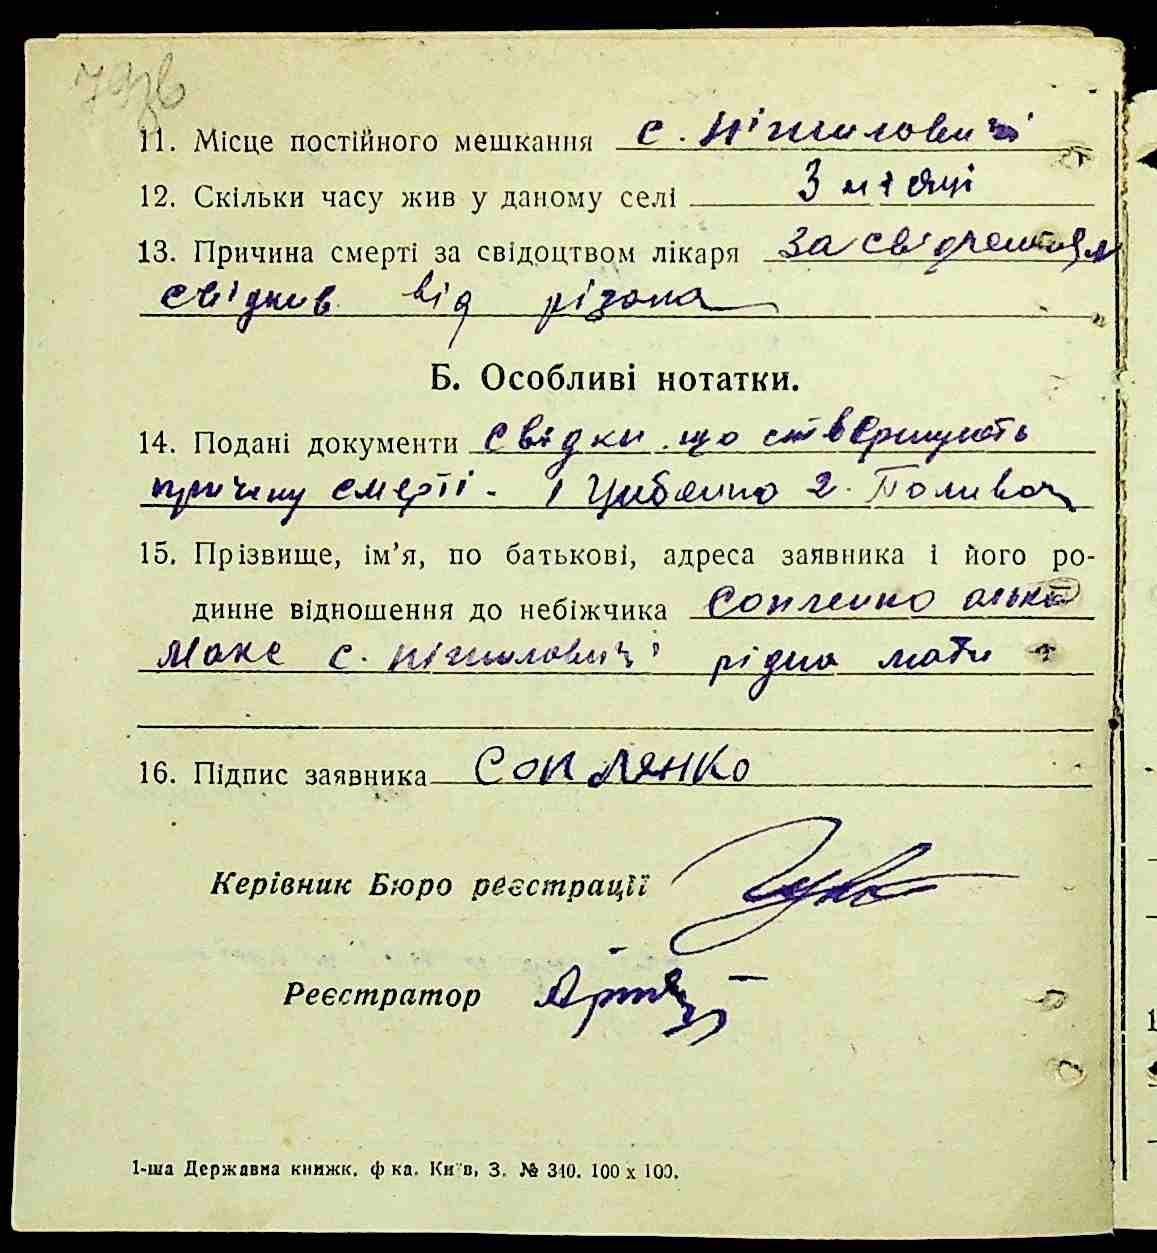 79зв
11. Місце постійного мешкання с. Ніжиловичі
12. Скільки часу жив у даному селі 3 місяці
13. Причина смерті за свідоцтвом лікаря за свідченням
свідків від
Б. Особливі нотатки.
14. Подані документи свідки що стверджують
причину смерті. 1 Цибенко 2.
15. Прізвище, ім’я, по батькові, адреса заявника і його ро-
динне відношення до небіжчика Сопленко
с. Ніжиловичі рідна мати
16. Підпис заявника Соплянко
Керівник Бюро реєстрації
Реєстратор
1-ша Державна книжк. ф ка. Київ, З. № 340. 100 х 100.